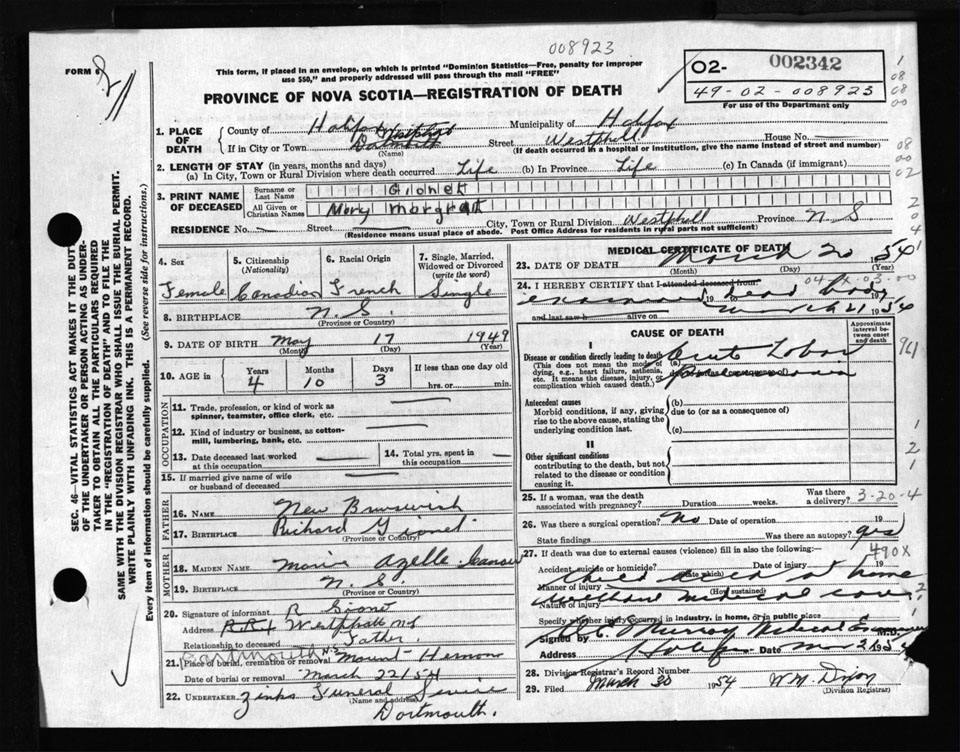 008923
FORM 6
This form, if placed in an envelope, on which is printed "Dominion Statistics—Free, penalty for improper
use $50," and properly addressed will pass through the mail "FREE"
PROVINCE OF NOVA SCOTIA—REGISTRATION OF DEATH
02- 002342
49-02-008923
For use of the Department only
1. PLACE OF DEATH
County of Halifax Municipality of Halifax
If in City or Town Dartmouth Westphal Street Westphall House No.
(Name) (If death occurred in a hospital or institution, give the name instead of street and number)
2. LENGTH OF STAY (in years, months and days)
(a) In City, Town or Rural Division where death occurred Life (b) In Province Life (c) In Canada (if immigrant)
3. PRINT NAME OF DECEASED
Surname or Last Name Gionet
All Given or Christian Names Mary Margret
RESIDENCE No. Street City, Town or Rural Division Westphall Province N S
(Residence means usual place of abode. Post Office Address for residents in rural parts not sufficient)
4. Sex
Female
5. Citizenship
(Nationality)
Canadian
6. Racial Origin
French
7. Single, Married,
Widowed or Divorced
(write the word)
Single
8. BIRTHPLACE N. S.
(Province or Country)
9. DATE OF BIRTH May 17 1949
(Month) (Day) (Year)
10. AGE in
Years Months Days If less than one day old
4 10 3 hrs. or min.
OCCUPATION
11. Trade, profession, or kind of work as
spinner, teamster, office clerk, etc.
12. Kind of industry or business, as cotton-
mill, lumbering, bank, etc.
13. Date deceased last worked
at this occupation
14. Total yrs. spent in
this occupation
15. If married give name of wife
or husband of deceased
FATHER
16. NAME New Brunswick
17. BIRTHPLACE Richard Gionet
(Province or Country)
MOTHER
18. MAIDEN NAME Marie Azelle
19. BIRTHPLACE N. S.
(Province or Country)
20. Signature of informant R Gionet
Address RR1 Westphall NS
Relationship to deceased Father
Dartmouth N.S.
21. Place of burial, cremation or removal Mount Hermon
Date of burial or removal March 22/54
22. UNDERTAKER Zinks Funeral Service
(Name and address)
Dartmouth.
MEDICAL CERTIFICATE OF DEATH
23. DATE OF DEATH March 20 1954
(Month) (Day) (Year)
24. I HEREBY CERTIFY that I attended deceased from:
examined 19 dead body 19
and last saw h alive on March 21 1954
CAUSE OF DEATH
Approximate interval between onset and death
I
Disease or condition directly leading to death (a) Acute Lobar
(This does not mean the mode of
dying, e.g., heart failure, asthenia,
etc. It means the disease, injury, or
complication which caused death.)
Pneumonia
Antecedent causes (b)
Morbid conditions, if any, giving due to (or as a consequence of)
rise to the above cause, stating the
underlying condition last. (c)
II
Other significant conditions
contributing to the death, but not
related to the disease or condition
causing it.
25. If a woman, was the death
associated with pregnancy? Duration weeks. Was there a delivery? 3-20-4
26. Was there a surgical operation? No Date of operation 19
State findings Was there an autopsy? yes
490X
27. If death was due to external causes (violence) fill in also the following:— 19
Accident, suicide or homicide? (Date which)
Child died at home
Manner of injury (How sustained)
without medical care
Nature of injury
Specify whether injury occurred in industry, in home, or in public place
Signed by Murray Medical Examiner M.D.
Address Halifax Date Mar 21 1954
28. Division Registrar's Record Number
29. Filed March 30 1954 W.M. Dixon
(Division Registrar)
SEC. 46—VITAL STATISTICS ACT MAKES IT THE DUTY
OF THE UNDERTAKER OR PERSON ACTING AS UNDER-
TAKER TO OBTAIN ALL THE PARTICULARS REQUIRED
IN THE "REGISTRATION OF DEATH" AND TO FILE THE
SAME WITH THE DIVISION REGISTRAR WHO SHALL ISSUE THE BURIAL PERMIT.
WRITE PLAINLY WITH UNFADING INK. THIS IS A PERMANENT RECORD.
Every item of information should be carefully supplied. (See reverse side for instructions.)